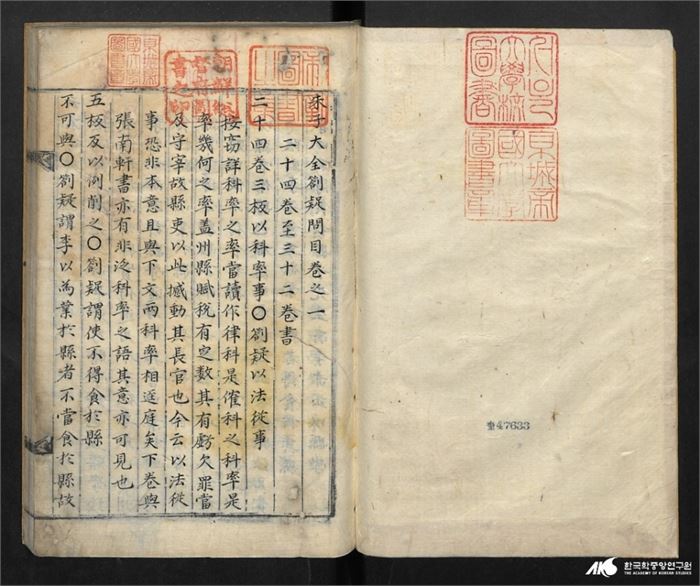 朱子大全劄疑問目卷之一
二十四卷至三十二卷書
二十四卷三板以科率事〇劄疑以法從事
按竊詳科率之率當讀作律科是催科之科率是
率幾何之率盖州縣賦稅有定數其有虧欠罪當
及守宰故縣吏以此撼動其長官也今云以法從
事恐非本意且與下文兩科率相逕庭矣下卷與
張南軒書亦有非泛科率之語其意亦可見也
五板及以削之〇劄疑謂使不得食於縣
不可與〇劄疑謂李以為業於縣者不當食於縣故
朝鮮總督府圖書之印
京城帝國大學圖書章
서울大學校圖書
奎47633
AKS 한국학중앙연구원
THE ACADEMY OF KOREAN STUDIES